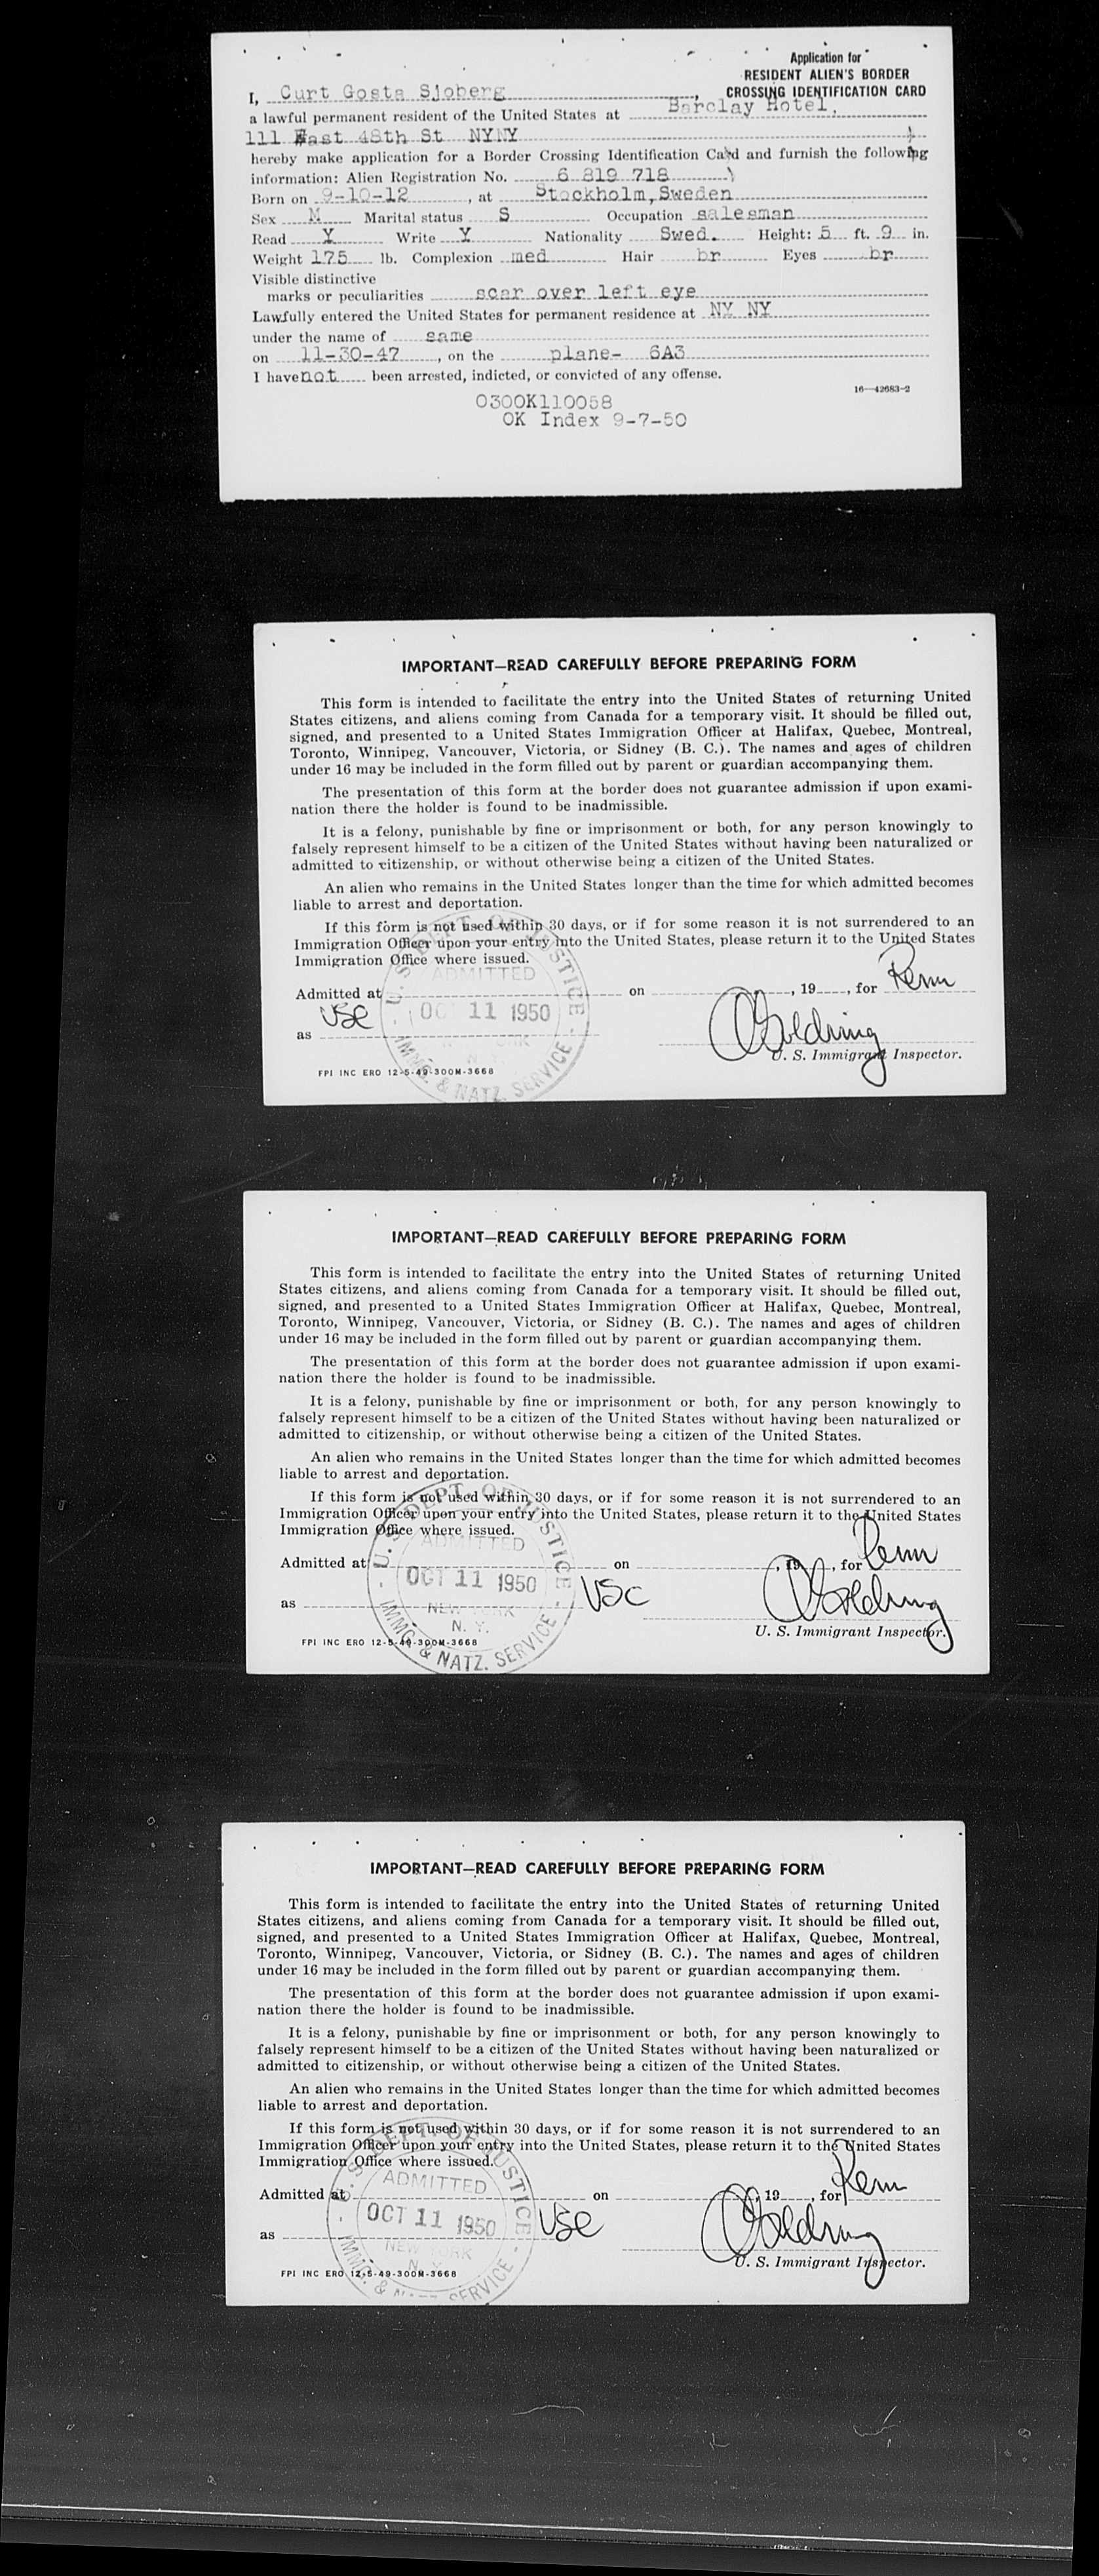 Application for
RESIDENT ALIEN'S BORDER
CROSSING IDENTIFICATION CARD
I, Curt Gosta Sjoberg,
a lawful permanent resident of the United States at Barclay Hotel,
111 East 48th St NYNY
hereby make application for a Border Crossing Identification Card and furnish the following
information: Alien Registration No. 6 819 718
Born on 9-10-12, at Stockholm, Sweden
Sex M Marital status S Occupation salesman
Read Y Write Y Nationality Swed. Height: 5 ft. 9 in.
Weight 175 lb. Complexion med Hair br Eyes br
Visible distinctive
marks or peculiarities scar over left eye
Lawfully entered the United States for permanent residence at NY NY
under the name of same
on 11-30-47, on the plane- 6A3
I have not been arrested, indicted, or convicted of any offense.
16—42683-2
0300K110058
OK Index 9-7-50
IMPORTANT—READ CAREFULLY BEFORE PREPARING FORM
This form is intended to facilitate the entry into the United States of returning United
States citizens, and aliens coming from Canada for a temporary visit. It should be filled out,
signed, and presented to a United States Immigration Officer at Halifax, Quebec, Montreal,
Toronto, Winnipeg, Vancouver, Victoria, or Sidney (B. C.). The names and ages of children
under 16 may be included in the form filled out by parent or guardian accompanying them.
The presentation of this form at the border does not guarantee admission if upon exami-
nation there the holder is found to be inadmissible.
It is a felony, punishable by fine or imprisonment or both, for any person knowingly to
falsely represent himself to be a citizen of the United States without having been naturalized or
admitted to citizenship, or without otherwise being a citizen of the United States.
An alien who remains in the United States longer than the time for which admitted becomes
liable to arrest and deportation.
If this form is not used within 30 days, or if for some reason it is not surrendered to an
Immigration Officer upon your entry into the United States, please return it to the United States
Immigration Office where issued.
U. S. DEPT. OF JUSTICE
ADMITTED
Admitted at on , 19 , for Perm
OCT 11 1950
as
N. Y.
IMMIG. & NATZ. SERVICE
U. S. Immigrant Inspector.
FPI INC ERO 12-5-49-300M-3668
IMPORTANT—READ CAREFULLY BEFORE PREPARING FORM
This form is intended to facilitate the entry into the United States of returning United
States citizens, and aliens coming from Canada for a temporary visit. It should be filled out,
signed, and presented to a United States Immigration Officer at Halifax, Quebec, Montreal,
Toronto, Winnipeg, Vancouver, Victoria, or Sidney (B. C.). The names and ages of children
under 16 may be included in the form filled out by parent or guardian accompanying them.
The presentation of this form at the border does not guarantee admission if upon exami-
nation there the holder is found to be inadmissible.
It is a felony, punishable by fine or imprisonment or both, for any person knowingly to
falsely represent himself to be a citizen of the United States without having been naturalized or
admitted to citizenship, or without otherwise being a citizen of the United States.
An alien who remains in the United States longer than the time for which admitted becomes
liable to arrest and deportation.
If this form is not used within 30 days, or if for some reason it is not surrendered to an
Immigration Officer upon your entry into the United States, please return it to the United States
Immigration Office where issued.
U. S. DEPT. OF JUSTICE
ADMITTED
Admitted at on , 19 , for Perm
OCT 11 1950
as USC
NEW YORK
N. Y.
IMMIG. & NATZ. SERVICE
U. S. Immigrant Inspector.
FPI INC ERO 12-5-49-300M-3668
IMPORTANT—READ CAREFULLY BEFORE PREPARING FORM
This form is intended to facilitate the entry into the United States of returning United
States citizens, and aliens coming from Canada for a temporary visit. It should be filled out,
signed, and presented to a United States Immigration Officer at Halifax, Quebec, Montreal,
Toronto, Winnipeg, Vancouver, Victoria, or Sidney (B. C.). The names and ages of children
under 16 may be included in the form filled out by parent or guardian accompanying them.
The presentation of this form at the border does not guarantee admission if upon exami-
nation there the holder is found to be inadmissible.
It is a felony, punishable by fine or imprisonment or both, for any person knowingly to
falsely represent himself to be a citizen of the United States without having been naturalized or
admitted to citizenship, or without otherwise being a citizen of the United States.
An alien who remains in the United States longer than the time for which admitted becomes
liable to arrest and deportation.
If this form is not used within 30 days, or if for some reason it is not surrendered to an
Immigration Officer upon your entry into the United States, please return it to the United States
Immigration Office where issued.
U. S. DEPT. OF JUSTICE
ADMITTED
Admitted at on , 19 , for Perm
OCT 11 1950
as USC
NEW YORK
N. Y.
IMMIG. & SERVICE
U. S. Immigrant Inspector.
FPI INC ERO 12-5-49-300M-3668